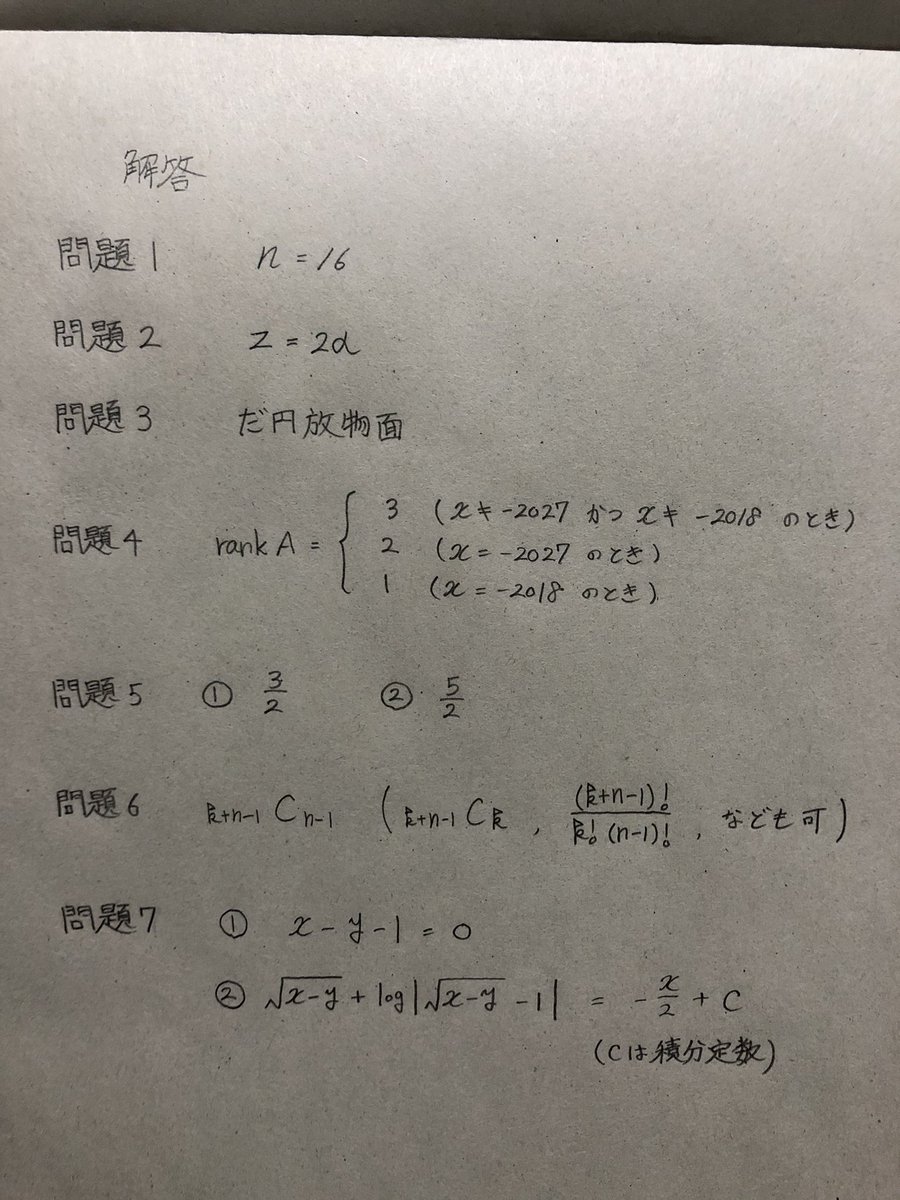 解答
問題1 n = 16
問題2 z = 2α
問題3 だ円放物面
問題4 rank A = { 3 (x ≠ -2027 かつ x ≠ -2018 のとき)
2 (x = -2027 のとき)
1 (x = -2018 のとき)
問題5 ① 3/2 ② 5/2
問題6 ₖ₊ₙ₋₁Cₙ₋₁ (ₖ₊ₙ₋₁Cₖ , (k+n-1)!/k!(n-1)! , なども可)
問題7 ① x - y - 1 = 0
② √(x-y) + log|√(x-y) - 1| = -x/2 + C
(Cは積分定数)